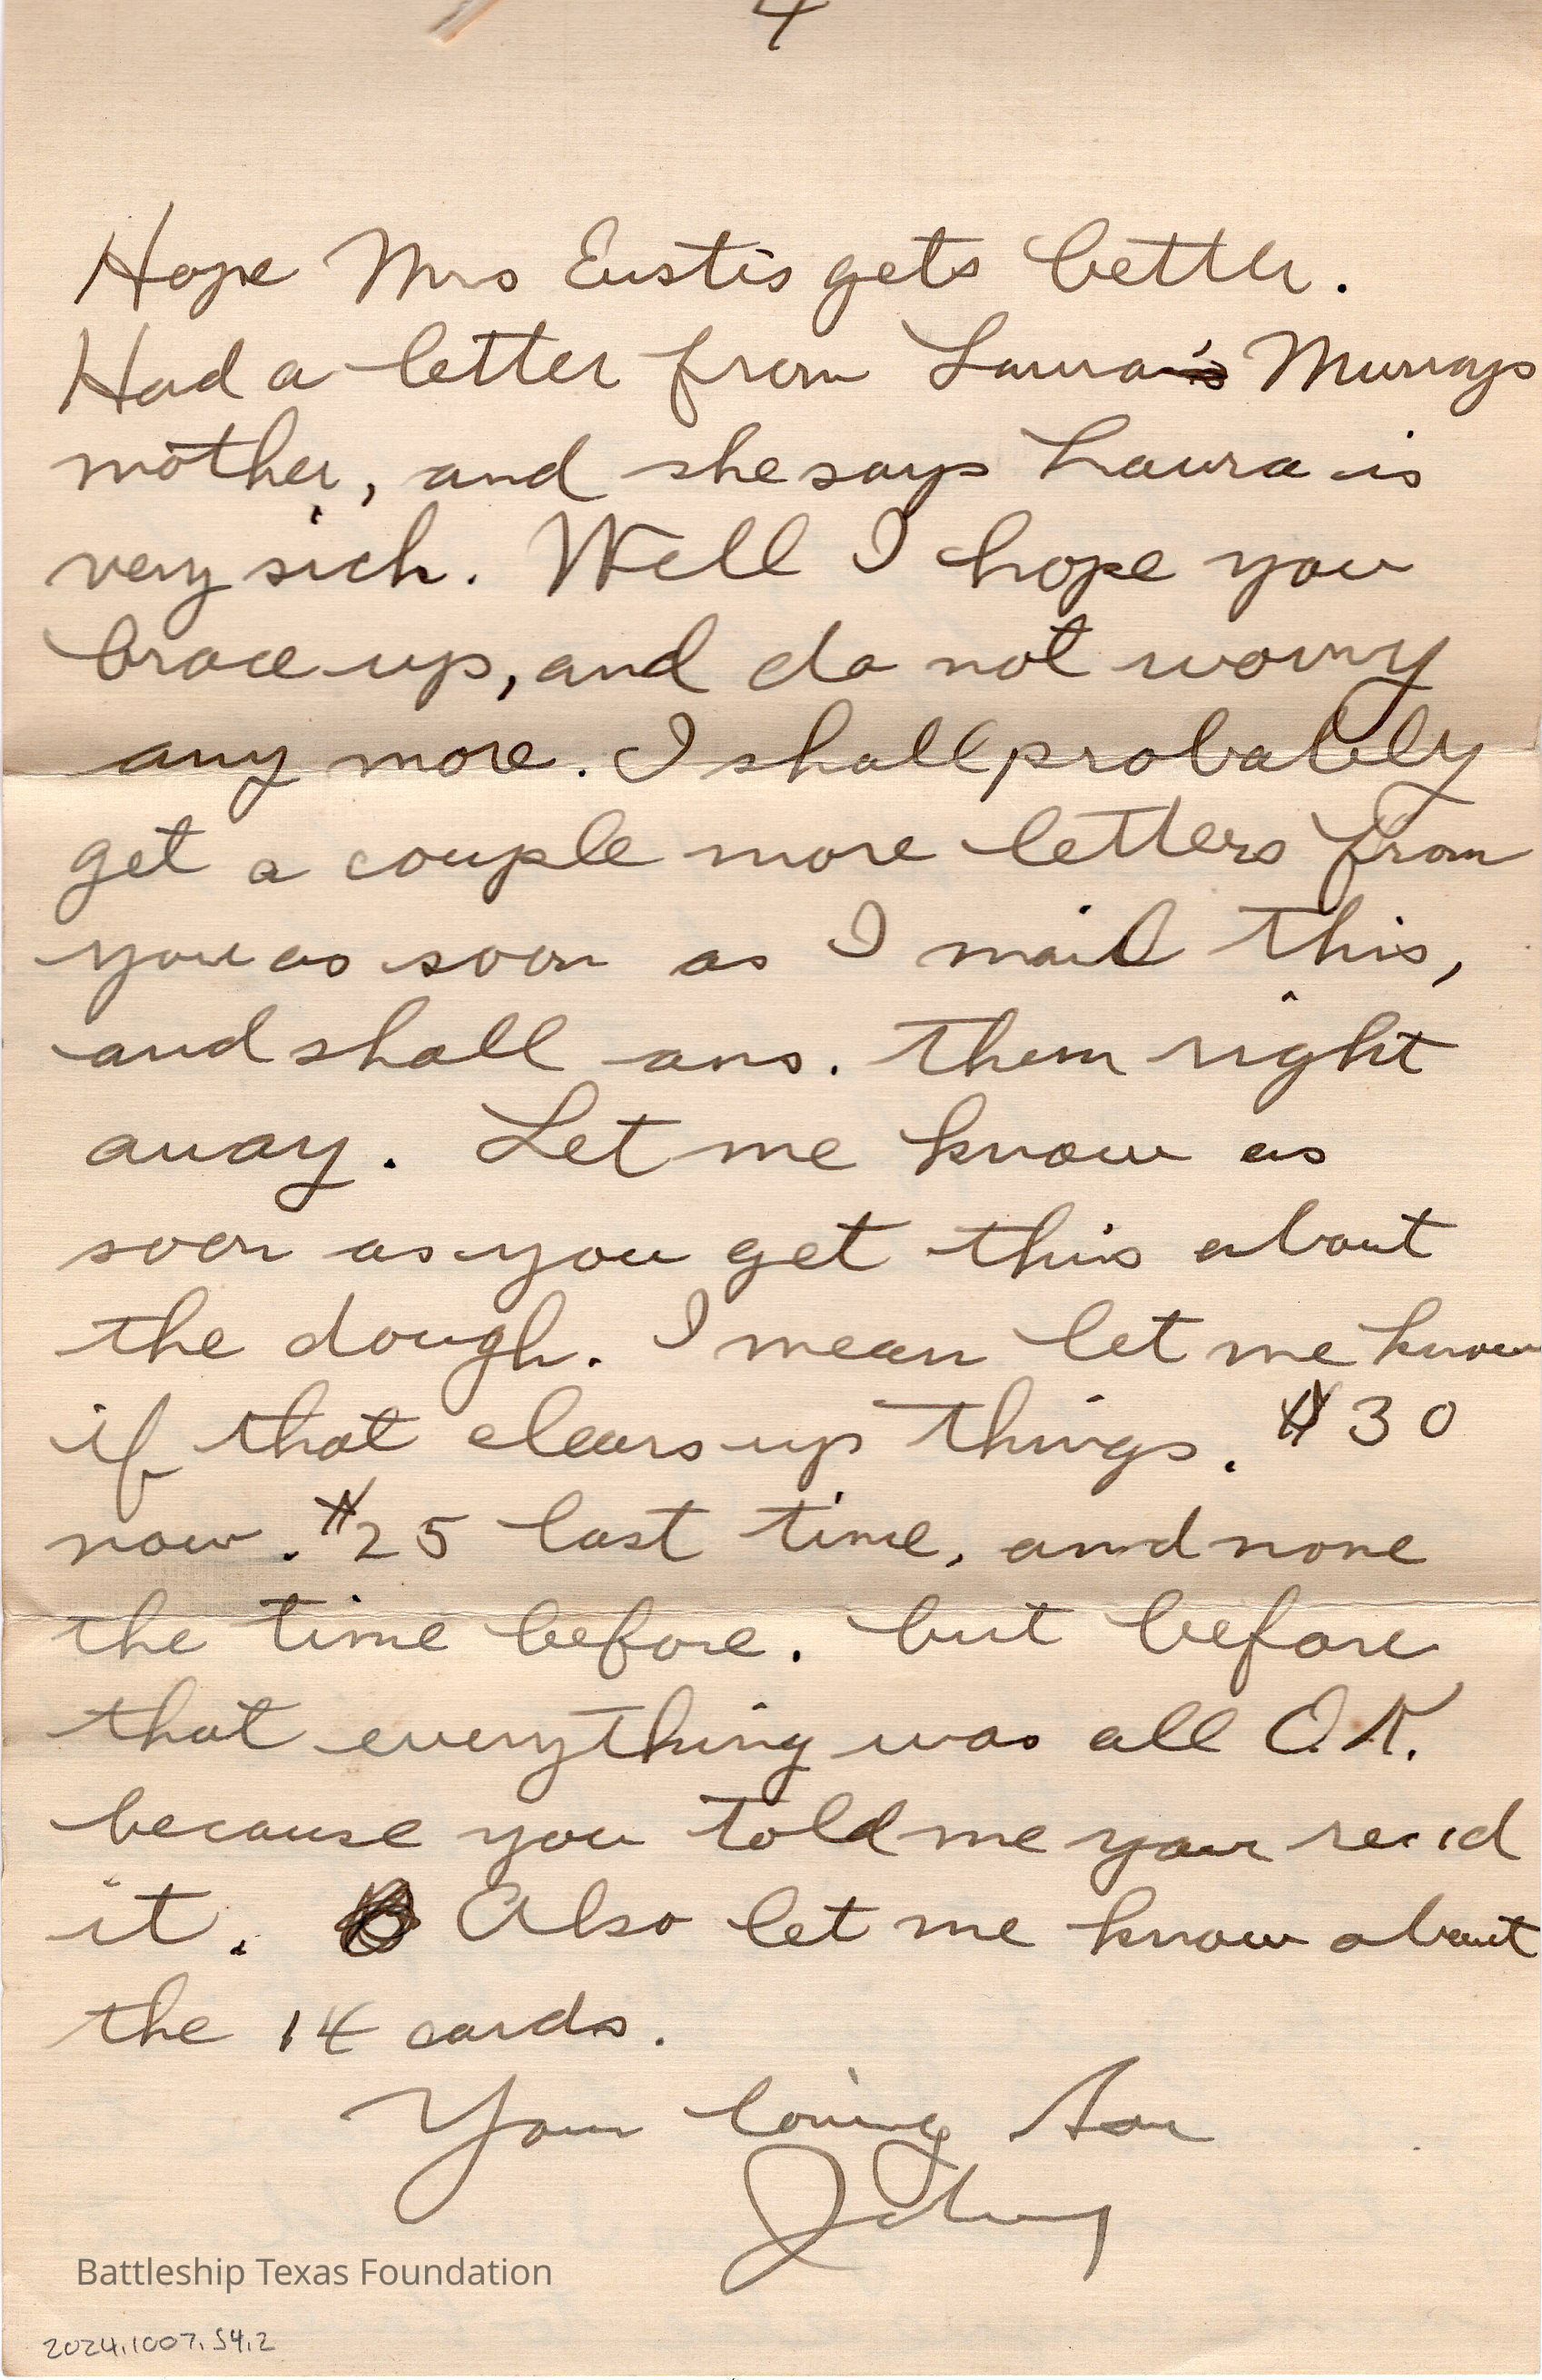 4
Hope Mrs Eustis gets better.
Had a letter from Laura Murrays
mother, and she says Laura is
very sick. Well I hope you
brace up, and do not worry
any more. I shall probably
get a couple more letters from
you as soon as I mail this,
and shall ans. them right
away. Let me know as
soon as you get this about
the dough. I mean let me know
if that clears up things. $30
now. $25 last time, and none
the time before. but before
that everything was all O.K.
because you told me your
it. Also let me know about
the 14 cards.
Your loving Son
Johnny
Battleship Texas Foundation
2024.1007.54.2